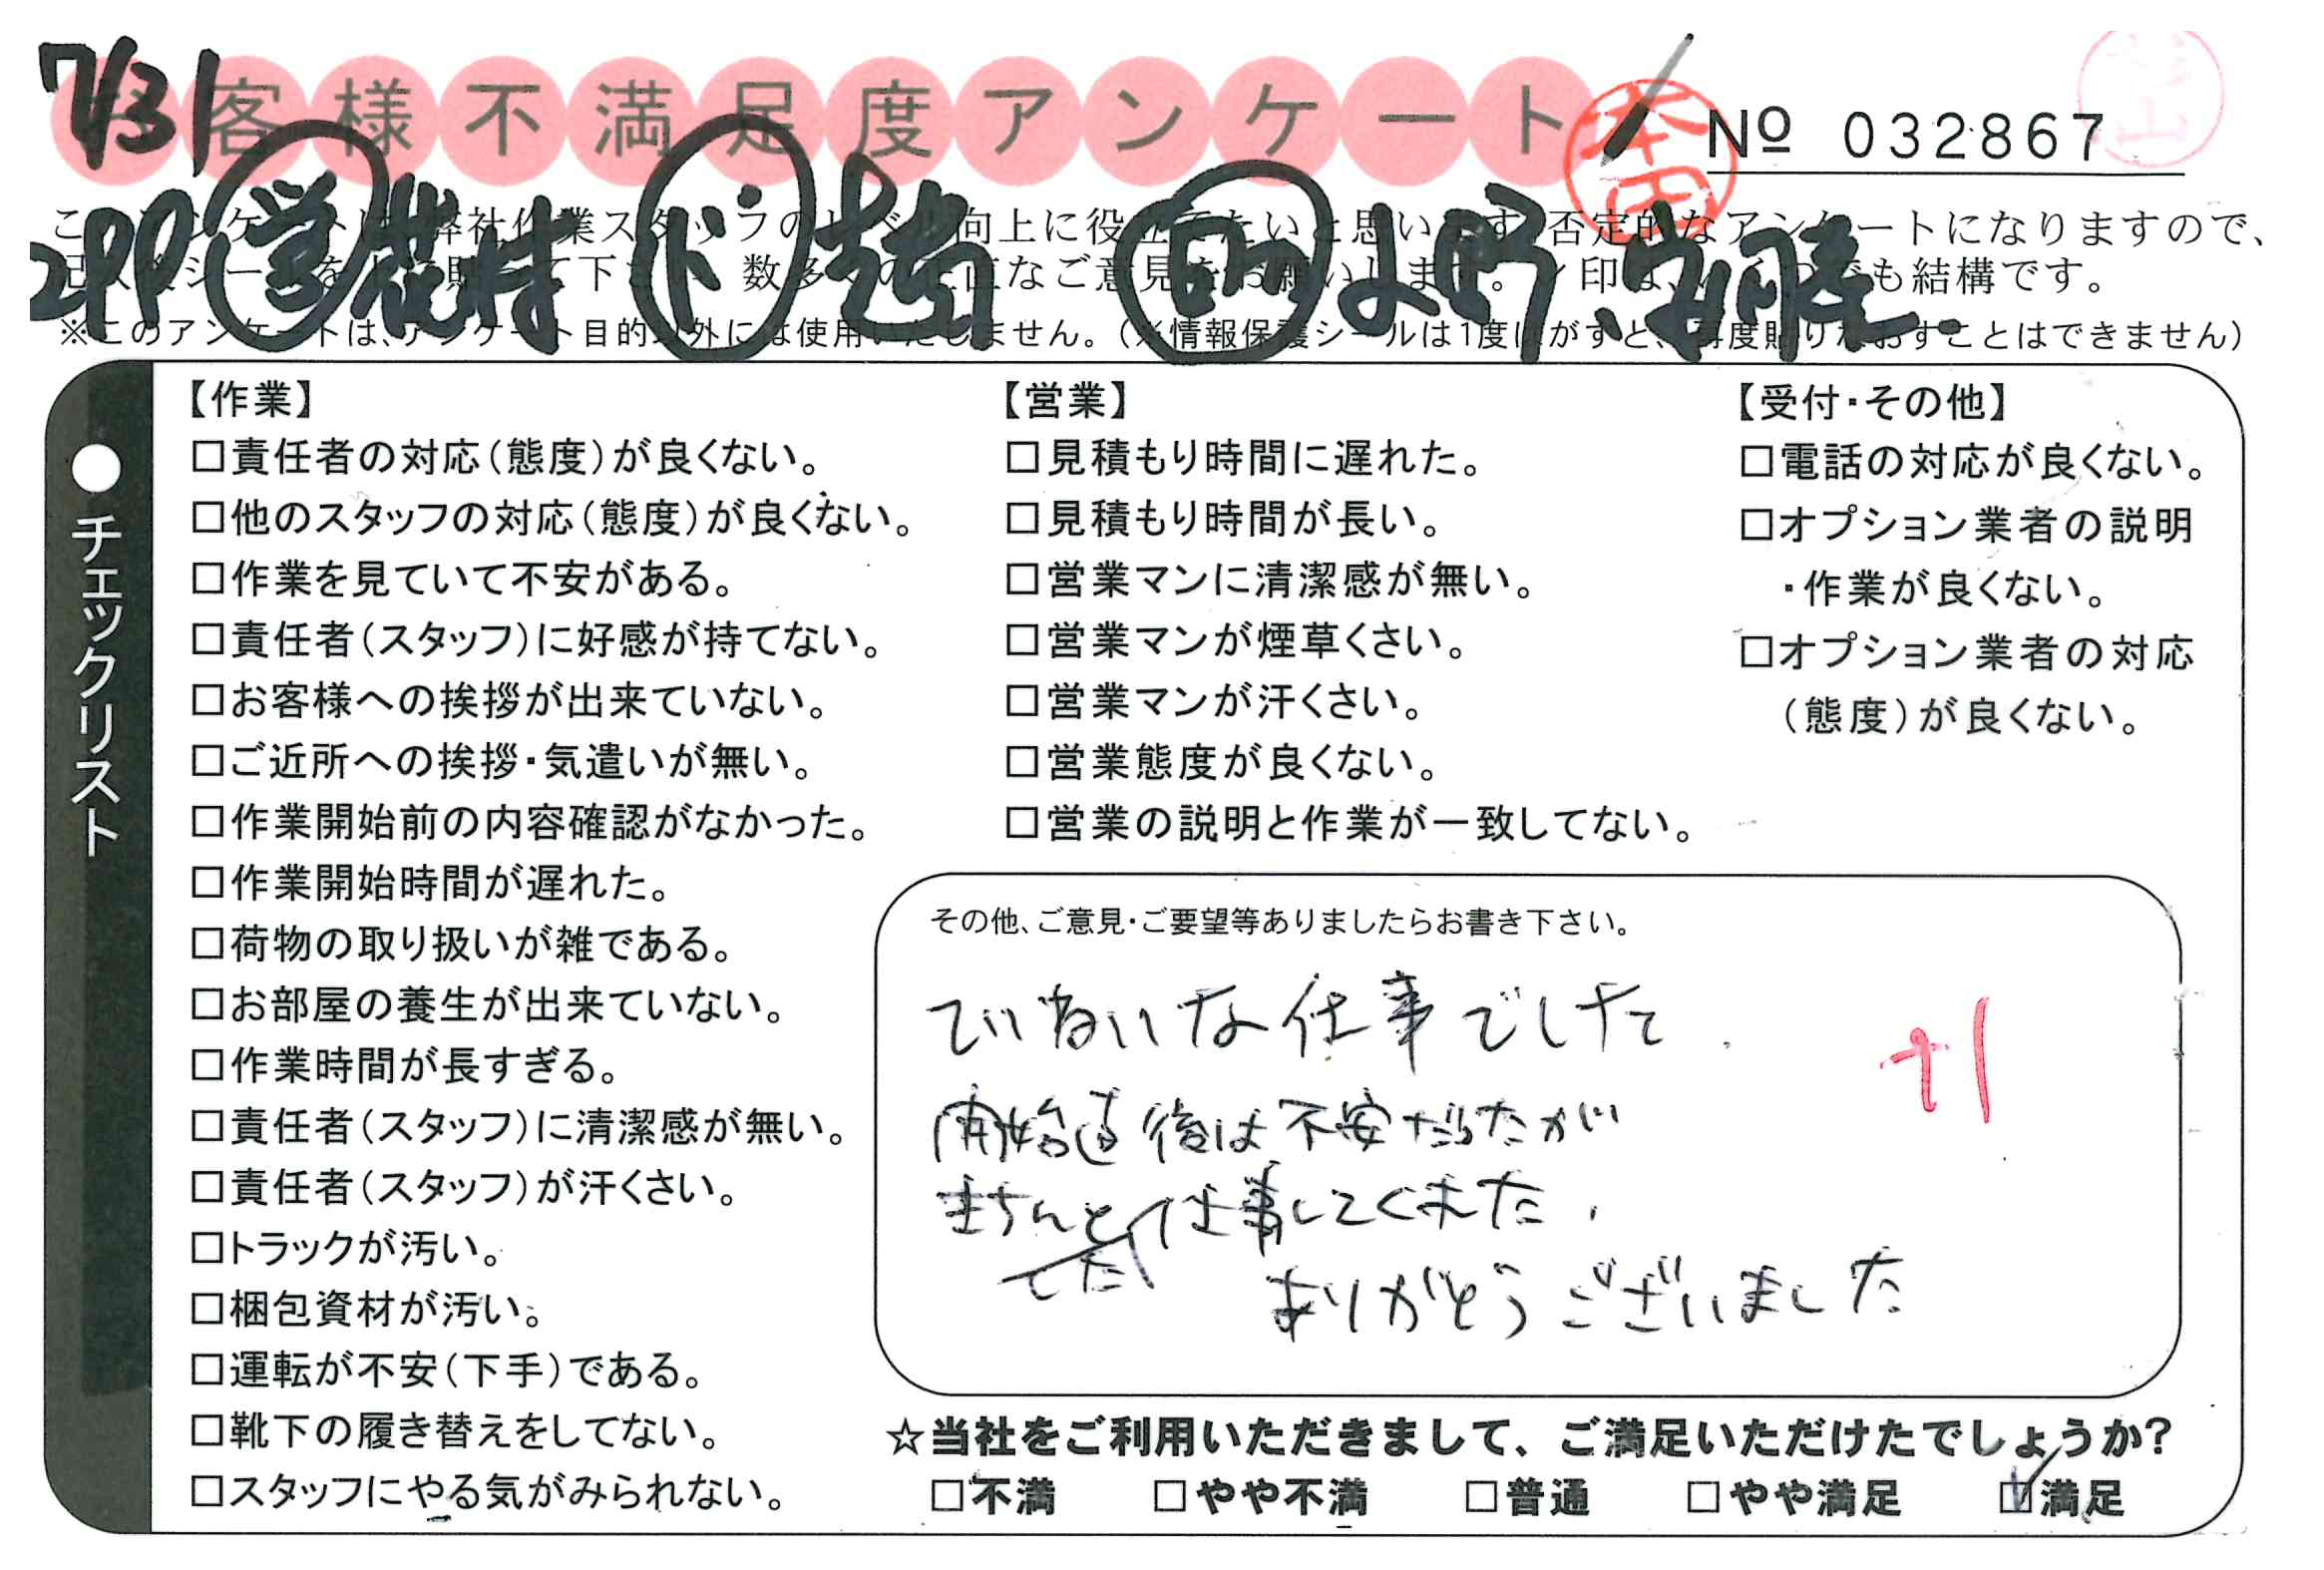 7/31
お客様不満足度アンケート
本田
No 032867
2PP 営 花村 ド 小野、安藤
このアンケートは、弊社作業スタッフのレベル向上に役立てたいと思います。否定的なアンケートになりますので、
数多くの正直なご意見をお願いします。 も結構です。
※このアンケートは、アンケート目的以外には使用いたしません。(※情報保護シールは1度はがすと、再度貼りなおすことはできません)
●チェックリスト
【作業】
□責任者の対応(態度)が良くない。
□他のスタッフの対応(態度)が良くない。
□作業を見ていて不安がある。
□責任者(スタッフ)に好感が持てない。
□お客様への挨拶が出来ていない。
□ご近所への挨拶・気遣いが無い。
□作業開始前の内容確認がなかった。
□作業開始時間が遅れた。
□荷物の取り扱いが雑である。
□お部屋の養生が出来ていない。
□作業時間が長すぎる。
□責任者(スタッフ)に清潔感が無い。
□責任者(スタッフ)が汗くさい。
□トラックが汚い。
□梱包資材が汚い。
□運転が不安(下手)である。
□靴下の履き替えをしてない。
□スタッフにやる気がみられない。
【営業】
□見積もり時間に遅れた。
□見積もり時間が長い。
□営業マンに清潔感が無い。
□営業マンが煙草くさい。
□営業マンが汗くさい。
□営業態度が良くない。
□営業の説明と作業が一致してない。
【受付・その他】
□電話の対応が良くない。
□オプション業者の説明
・作業が良くない。
□オプション業者の対応
(態度)が良くない。
その他、ご意見・ご要望等ありましたらお書き下さい。
ていねいな仕事でした
開始直後は不安だったが
きちんと仕事してくれました。
ありがとうございました
+1
☆当社をご利用いただきまして、ご満足いただけたでしょうか?
□不満 □やや不満 □普通 □やや満足 ☑満足